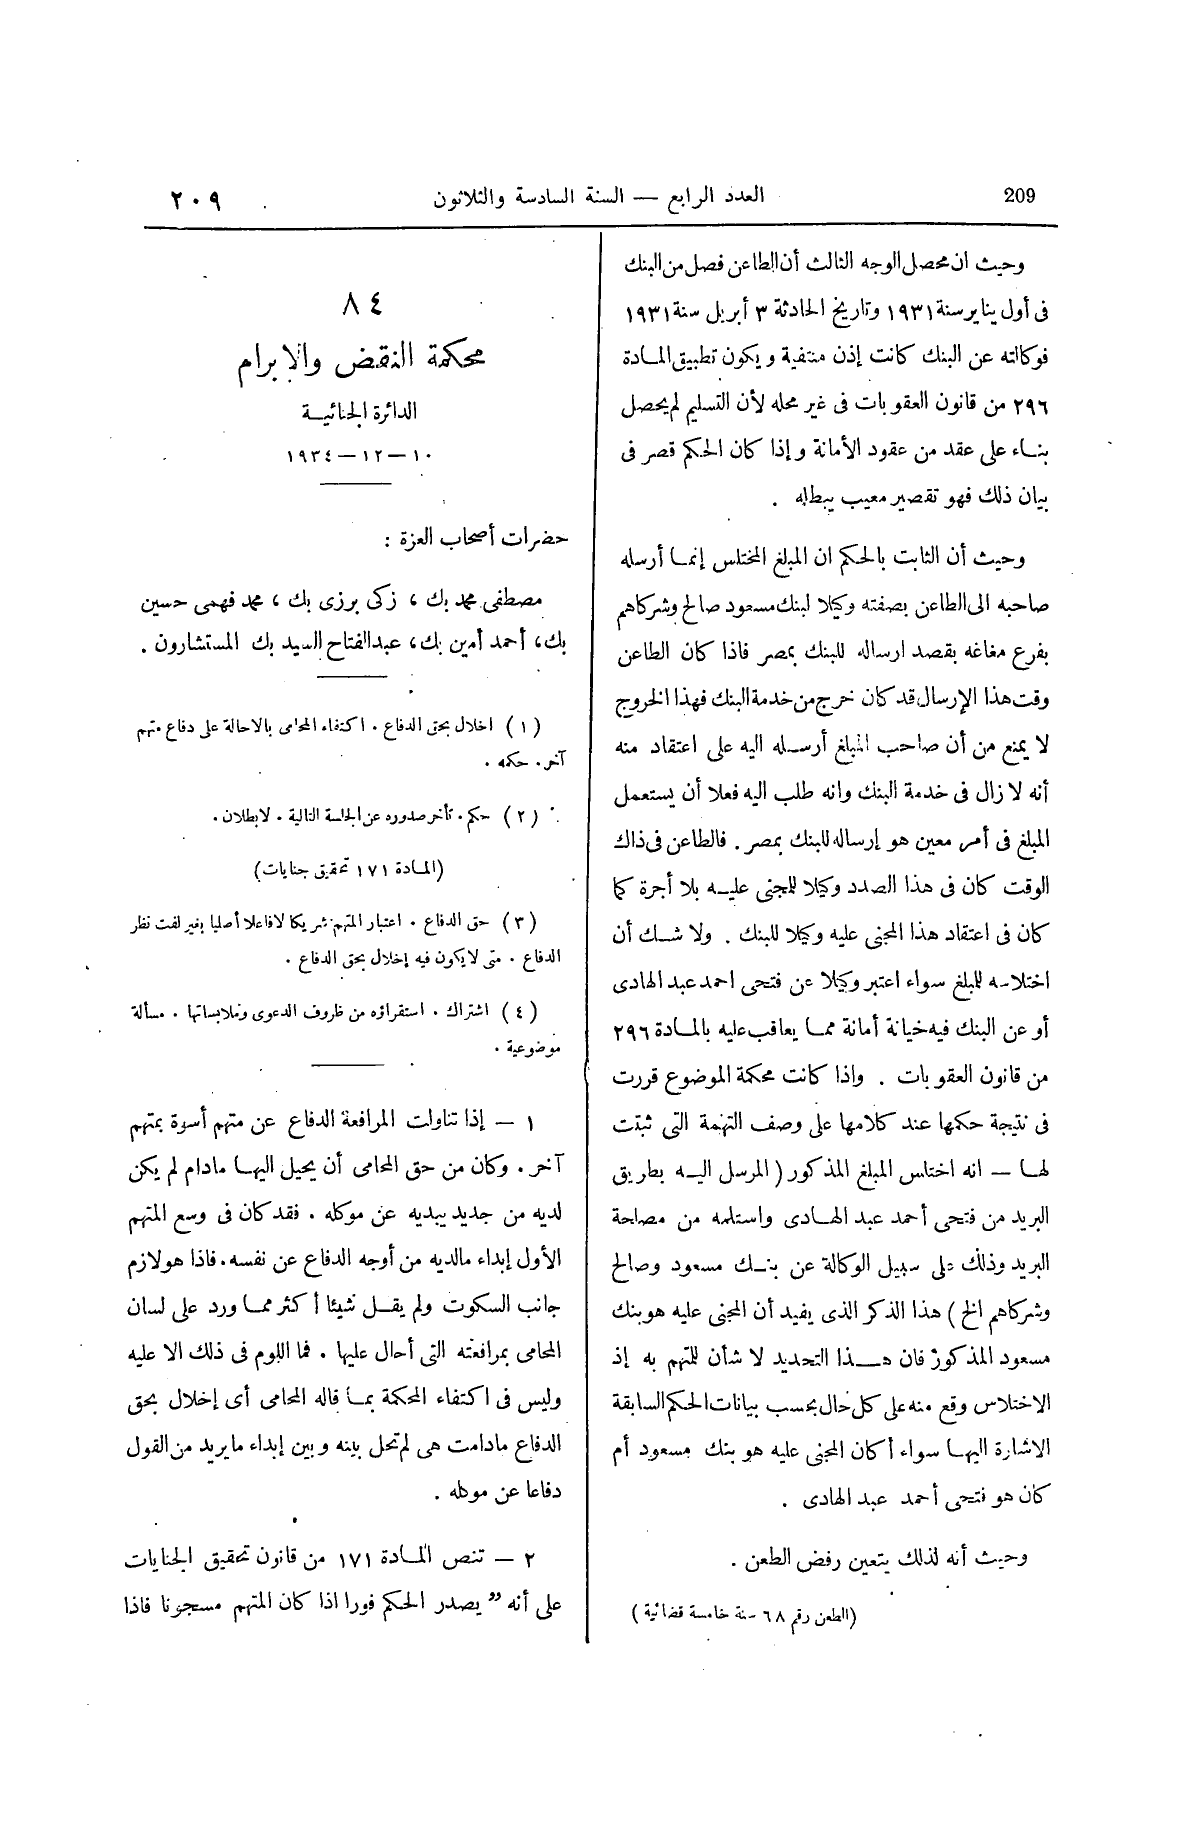 209 العدد الرابع — السنة السادسة والثلاثون ٢٠٩
وحيث ان محصل الوجه الثالث أن الطاعن فصل من البنك
فى أول يناير سنة ١٩٣١ وتاريخ الحادثة ٣ أبريل سنة ١٩٣١
فوكالته عن البنك كانت إذن منتفية ويكون تطبيق المادة
٢٩٦ من قانون العقوبات فى غير محله لأن التسليم لم يحصل
بناء على عقد من عقود الأمانة وإذا كان الحكم قصر فى
بيان ذلك فهو تقصير معيب يبطله .
وحيث أن الثابت بالحكم ان المبلغ المختلس إنما أرسله
صاحبه الى الطاعن بصفته وكيلا لبنك مسعود صالح وشركاهم
بفرع مغاغه بقصد ارساله للبنك بمصر فاذا كان الطاعن
وقت هذا الإرسال قد كان خرج من خدمة البنك فهذا الخروج
لا يمنع من أن صاحب المبلغ أرسله اليه على اعتقاد منه
أنه لا زال فى خدمة البنك وانه طلب اليه فعلا أن يستعمل
المبلغ فى أمر معين هو إرساله للبنك بمصر . فالطاعن فى ذاك
الوقت كان فى هذا الصدد وكيلا للمجنى عليه بلا أجرة كما
كان فى اعتقاد هذا المجنى عليه وكيلا للبنك . ولا شك أن
اختلاسه للمبلغ سواء اعتبر وكيلا عن فتحى احمد عبد الهادى
أو عن البنك فيه خيانة أمانة مما يعاقب عليه بالمادة ٢٩٦
من قانون العقوبات . واذا كانت محكمة الموضوع قررت
فى نتيجة حكمها عند كلامها على وصف التهمة التى ثبتت
لها — انه اختلس المبلغ المذكور ( المرسل اليه بطريق
البريد من فتحى أحمد عبد الهادى واستلمه من مصلحة
البريد وذلك على سبيل الوكالة عن بنك مسعود وصالح
وشركاهم الخ ) هذا الذكر الذى يفيد أن المجنى عليه هو بنك
مسعود المذكور فان هذا التحديد لا شأن للمتهم به إذ
الاختلاس وقع منه على كل حال بحسب بيانات الحكم السابقة
الاشارة اليها سواء أكان المجنى عليه هو بنك مسعود أم
كان هو فتحى أحمد عبد الهادى .
وحيث أنه لذلك يتعين رفض الطعن .
(الطعن رقم ٦٨ سنة خامسة قضائية )
٨٤
محكمة النقض والإبرام
الدائرة الجنائية
١٠—١٢—١٩٣٤
حضرات أصحاب العزة :
مصطفى محمد بك ، زكى برزى بك ، محمد فهمى حسين
بك ، أحمد أمين بك ، عبد الفتاح السيد بك المستشارون .
(١) اخلال بحق الدفاع . اكتفاء المحامى بالاحالة على دفاع متهم
آخر . حكمه .
(٢) حكم . تأخر صدوره عن الجلسة التالية . لا بطلان .
(المادة ١٧١ تحقيق جنايات)
(٣) حق الدفاع . اعتبار المتهم شريكا لا فاعلا أصليا بغير لفت نظر
الدفاع . متى لا يكون فيه إخلال بحق الدفاع .
(٤) اشتراك . استقراؤه من ظروف الدعوى وملابساتها . مسألة
موضوعية .
١ — إذا تناولت المرافعة الدفاع عن متهم أسوة بمتهم
آخر . وكان من حق المحامى أن يحيل اليها مادام لم يكن
لديه من جديد يبديه عن موكله . فقد كان فى وسع المتهم
الأول إبداء مالديه من أوجه الدفاع عن نفسه . فاذا هو لازم
جانب السكوت ولم يقل شيئا أكثر مما ورد على لسان
المحامى بمرافعته التى أحال عليها . فما اللوم فى ذلك الا عليه
وليس فى اكتفاء المحكمة بما قاله المحامى أى إخلال بحق
الدفاع مادامت هى لم تحل بينه وبين إبداء ما يريد من القول
دفاعا عن موكله .
٢ — تنص المادة ١٧١ من قانون تحقيق الجنايات
على أنه " يصدر الحكم فورا اذا كان المتهم مسجونا فاذا